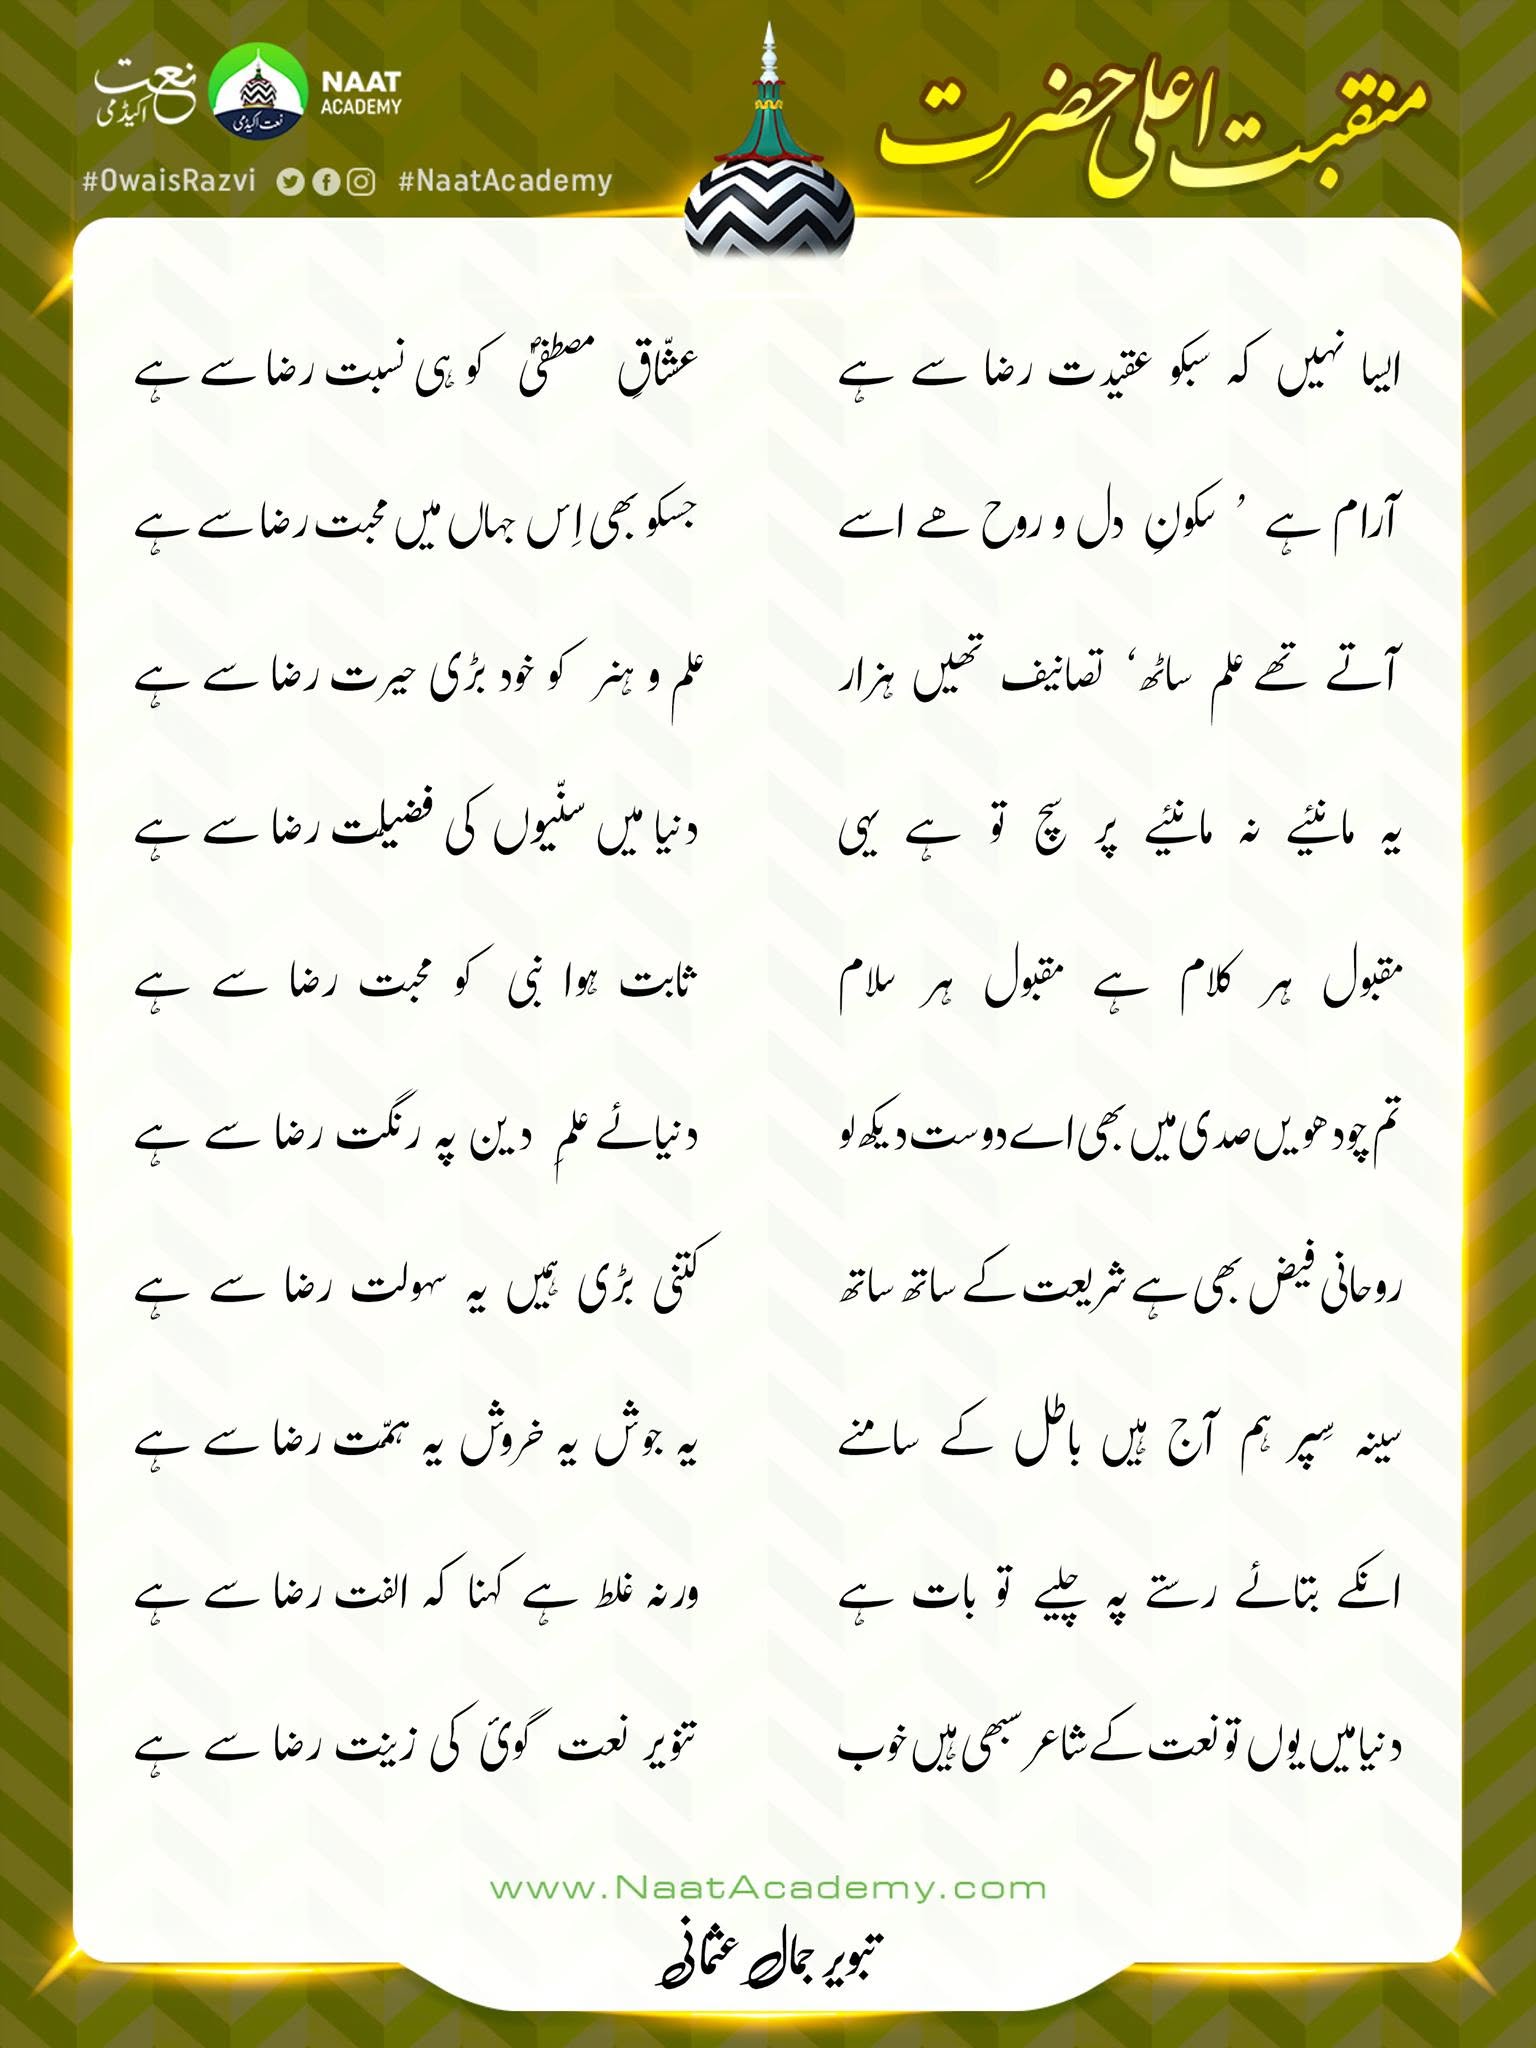 نعت اکیڈمی
نعت اکیڈمی
NAAT
ACADEMY
#OwaisRazvi #NaatAcademy
منقبت اعلیٰ حضرت
ایسا نہیں کہ سبکو عقیدت رضا سے ہے
عشّاقِ مصطفیٰؐ کو ہی نسبت رضا سے ہے
آرام ہے ’ سکونِ دل و روح ھے اسے
جسکو بھی اِس جہاں میں محبت رضا سے ہے
آتے تھے علم ساٹھ‘ تصانیف تھیں ہزار
علم و ہنر کو خود بڑی حیرت رضا سے ہے
یہ مانئیے نہ مانئیے پر سچ تو ہے یہی
دنیا میں سنّیوں کی فضیلت رضا سے ہے
مقبول ہر کلام ہے مقبول ہر سلام
ثابت ہوا نبی کو محبت رضا سے ہے
تم چودھویں صدی میں بھی اے دوست دیکھ لو
دنیائے علمِ دین پہ رنگت رضا سے ہے
روحانی فیض بھی ہے شریعت کے ساتھ ساتھ
کتنی بڑی ہمیں یہ سہولت رضا سے ہے
سینہ سِپر ہم آج ہیں باطل کے سامنے
یہ جوش یہ خروش یہ ہمّت رضا سے ہے
انکے بتائے رستے پہ چلیے تو بات ہے
ورنہ غلط ہے کہنا کہ الفت رضا سے ہے
دنیا میں یوں تو نعت کے شاعر سبھی ہیں خوب
تنویر نعت گوئ کی زینت رضا سے ہے
www.NaatAcademy.com
تنویر جمال عثمانی